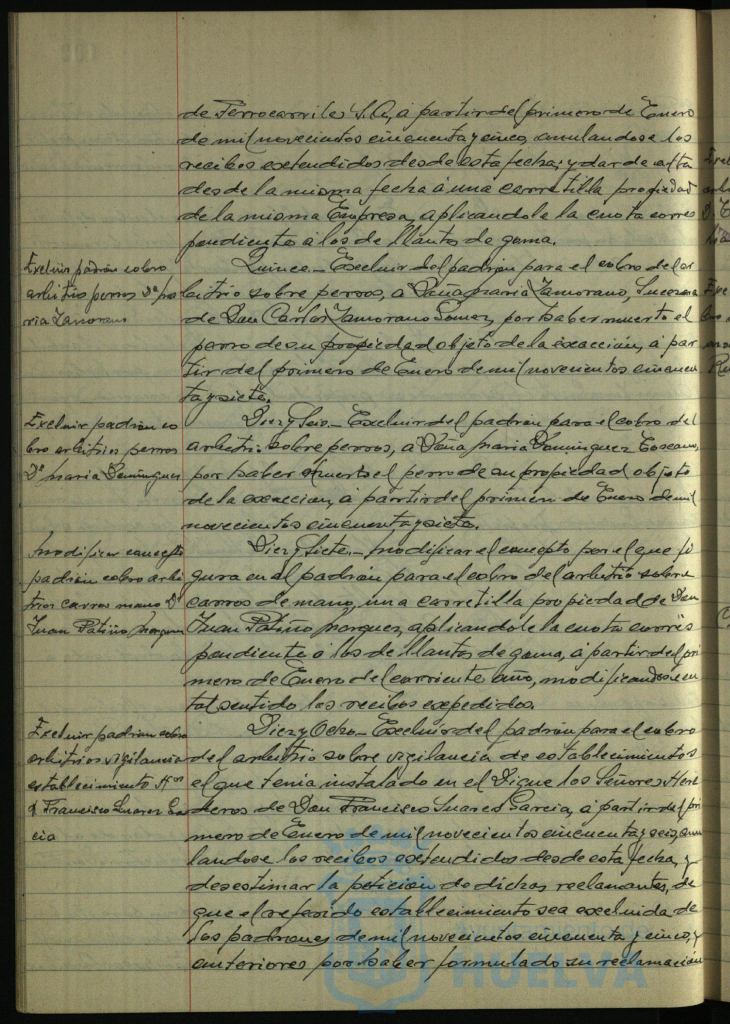 de Ferrocarriles S.A, á partir del primero de Enero
de mil novecientos cincuenta y cinco, anulandose los
recibos extendidos desde esta fecha; y dar de alta
desde la misma fecha á una carretilla propiedad
de la misma Empresa, aplicandole la cuota corres
pondiente á los de llantas de goma.
Excluir padrón cobro
arbitrio perros Dª Ma
ria Zamorano
Quince.- Excluir del padrón para el cobro del ar
bitrio sobre perros, a Doña Maria Zamorano, Sucesora
de Don Carlos Zamorano Gomez, por haber muerto el
perro de su propiedad objeto de la exacción, á par
tir del primero de Enero de mil novecientos cincuen
ta y siete.
Excluir padrón co
bro arbitrios perros
Dª Maria Domínguez
Diez y Seis.- Excluir del padrón para el cobro del
arbitrio sobre perros, a Doña Maria Dominguez Toscano,
por haber muerto el perro de su propiedad objeto
de la exacción, á partir del primero de Enero de mil
novecientos cincuenta y siete.
Modificar concepto
padrón cobro arbi
trios carros mano Dº
Juan Patiño Marquez
Diez y Siete.- Modificar el concepto por el que fi
gura en el padrón para el cobro del arbitrio sobre
carros de mano, una carretilla propiedad de Don
Juan Patiño Marquez, aplicandole la cuota corres
pondiente á los de llantas de goma, á partir del pri
mero de Enero del corriente año, modificandose en
tal sentido los recibos expedidos.
Excluir padrón cobro
arbitrios vigilancia
establecimiento Hºs
d Francisco Suarez Gar
cia
Diez y Ocho.- Excluir del padrón para el cobro
del arbitrio sobre vigilancia de establecimientos
el que tenia instalado en el Dique los Señores Here
deros de Don Francisco Suares Garcia, á partir del pri
mero de Enero de mil novecientos cincuenta y seis, anu
landose los recibos extendidos desde esta fecha, y
desestimar la petición de dichos reclamantes, de
que el referido establecimiento sea excluida de
los padrones de mil novecientos cincuenta y cinco, y
anteriores por haber formulado su reclamación
HUELVA